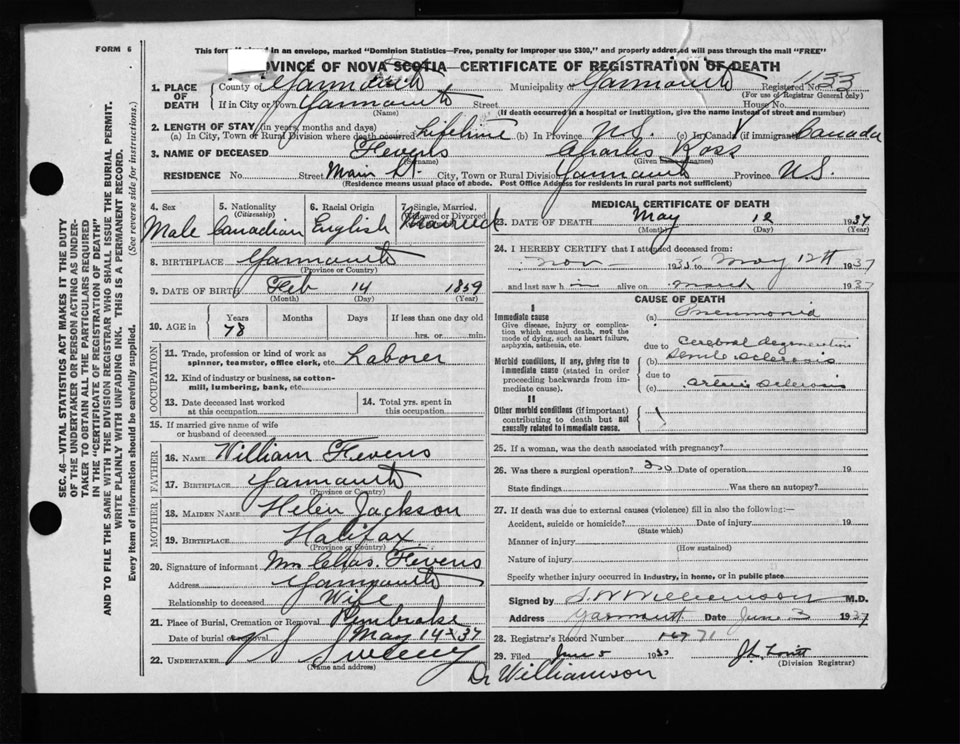 FORM 6
This form if sent in an envelope, marked "Dominion Statistics—Free, penalty for improper use $300," and properly addressed will pass through the mail "FREE"
OVINCE OF NOVA SCOTIA—CERTIFICATE OF REGISTRATION OF DEATH
1133
1. PLACE OF DEATH
County of Yarmouth Municipality of Yarmouth Registered No.
(For use of Registrar General only)
If in City or Town Yarmouth Street House No.
(Name) (If death occurred in hospital or institution, give the name instead of street and number)
2. LENGTH OF STAY (in years, months and days)
(a) In City, Town or Rural Division where death occurred Lifetime (b) In Province N.S. (c) In Canada (if immigrant) Canada
3. NAME OF DECEASED Stevens Charles Ross
(Surname) (Given name or names)
RESIDENCE No. Street Main St. City, Town or Rural Division Yarmouth Province N.S.
(Residence means usual place of abode. Post Office Address for residents in rural parts not sufficient)
4. Sex 5. Nationality (Citizenship) 6. Racial Origin 7. Single, Married, Widowed or Divorced
Male Canadian English Married
8. BIRTHPLACE Yarmouth
(Province or Country)
9. DATE OF BIRTH Feb 14 1859
(Month) (Day) (Year)
10. AGE in Years Months Days If less than one day old
78 hrs. or min.
OCCUPATION
11. Trade, profession or kind of work as spinner, teamster, office clerk, etc. Laborer
12. Kind of industry or business, as cotton-mill, lumbering, bank, etc.
13. Date deceased last worked at this occupation 14. Total yrs. spent in this occupation
15. If married give name of wife or husband of deceased
FATHER
16. NAME William Stevens
17. BIRTHPLACE Yarmouth
(Province or Country)
MOTHER
18. MAIDEN NAME Helen Jackson
19. BIRTHPLACE Halifax
(Province or Country)
20. Signature of informant Mrs Chas. Stevens
Address Yarmouth
Relationship to deceased Wife
21. Place of Burial, Cremation or Removal Pembroke
Date of burial or removal May 14 37
22. UNDERTAKER Sweeny
(Name and address)
Dr Williamson
MEDICAL CERTIFICATE OF DEATH
23. DATE OF DEATH May 12 1937
(Month) (Day) (Year)
24. I HEREBY CERTIFY that I attended deceased from:
Nov 1935 to May 12th 1937
and last saw him alive on March 1937
CAUSE OF DEATH
I
Immediate cause (a) Pneumonia
Give disease, injury or complication which caused death, not the mode of dying, such as heart failure, asphyxia, asthenia, etc.
due to Cerebral degeneration
Morbid conditions, if any, giving rise to immediate cause (stated in order proceeding backwards from immediate cause). (b) Senile sclerosis
due to
(c) arterio sclerosis
II
Other morbid conditions (if important) contributing to death but not causally related to immediate cause.
25. If a woman, was the death associated with pregnancy?
26. Was there a surgical operation? no Date of operation 19
State findings Was there an autopsy?
27. If death was due to external causes (violence) fill in also the following:—
Accident, suicide or homicide? Date of injury 19
(State which)
Manner of injury
(How sustained)
Nature of injury
Specify whether injury occurred in industry, in home, or in public place
Signed by S. W. Williamson M.D.
Address Yarmouth Date June 3 1937
28. Registrar's Record Number
29. Filed June 5 193
(Division Registrar)
SEC. 46—VITAL STATISTICS ACT MAKES IT THE DUTY
OF THE UNDERTAKER OR PERSON ACTING AS UNDER-
TAKER TO OBTAIN ALL THE PARTICULARS REQUIRED
IN THE "CERTIFICATE OF REGISTRATION OF DEATH"
AND TO FILE THE SAME WITH THE DIVISION REGISTRAR WHO SHALL ISSUE THE BURIAL PERMIT.
WRITE PLAINLY WITH UNFADING INK. THIS IS A PERMANENT RECORD.
Every item of information should be carefully supplied. (See reverse side for instructions.)